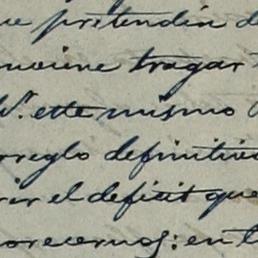 ue pretendia d
nviene tragar
V. este mismo
rreglo definitiv
rir el deficit que
orecernos: en l